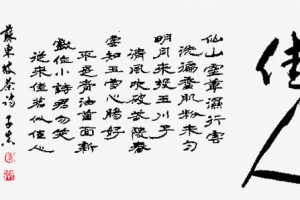 佳人
仙山靈草濕行雲
洗遍香肌粉未勻
明月來投玉川子
清風吹破武陵春
要知玉雪心腸好
不是膏油首面新
戲作小詩君勿笑
從來佳茗似佳人
蘇東坡茶詩